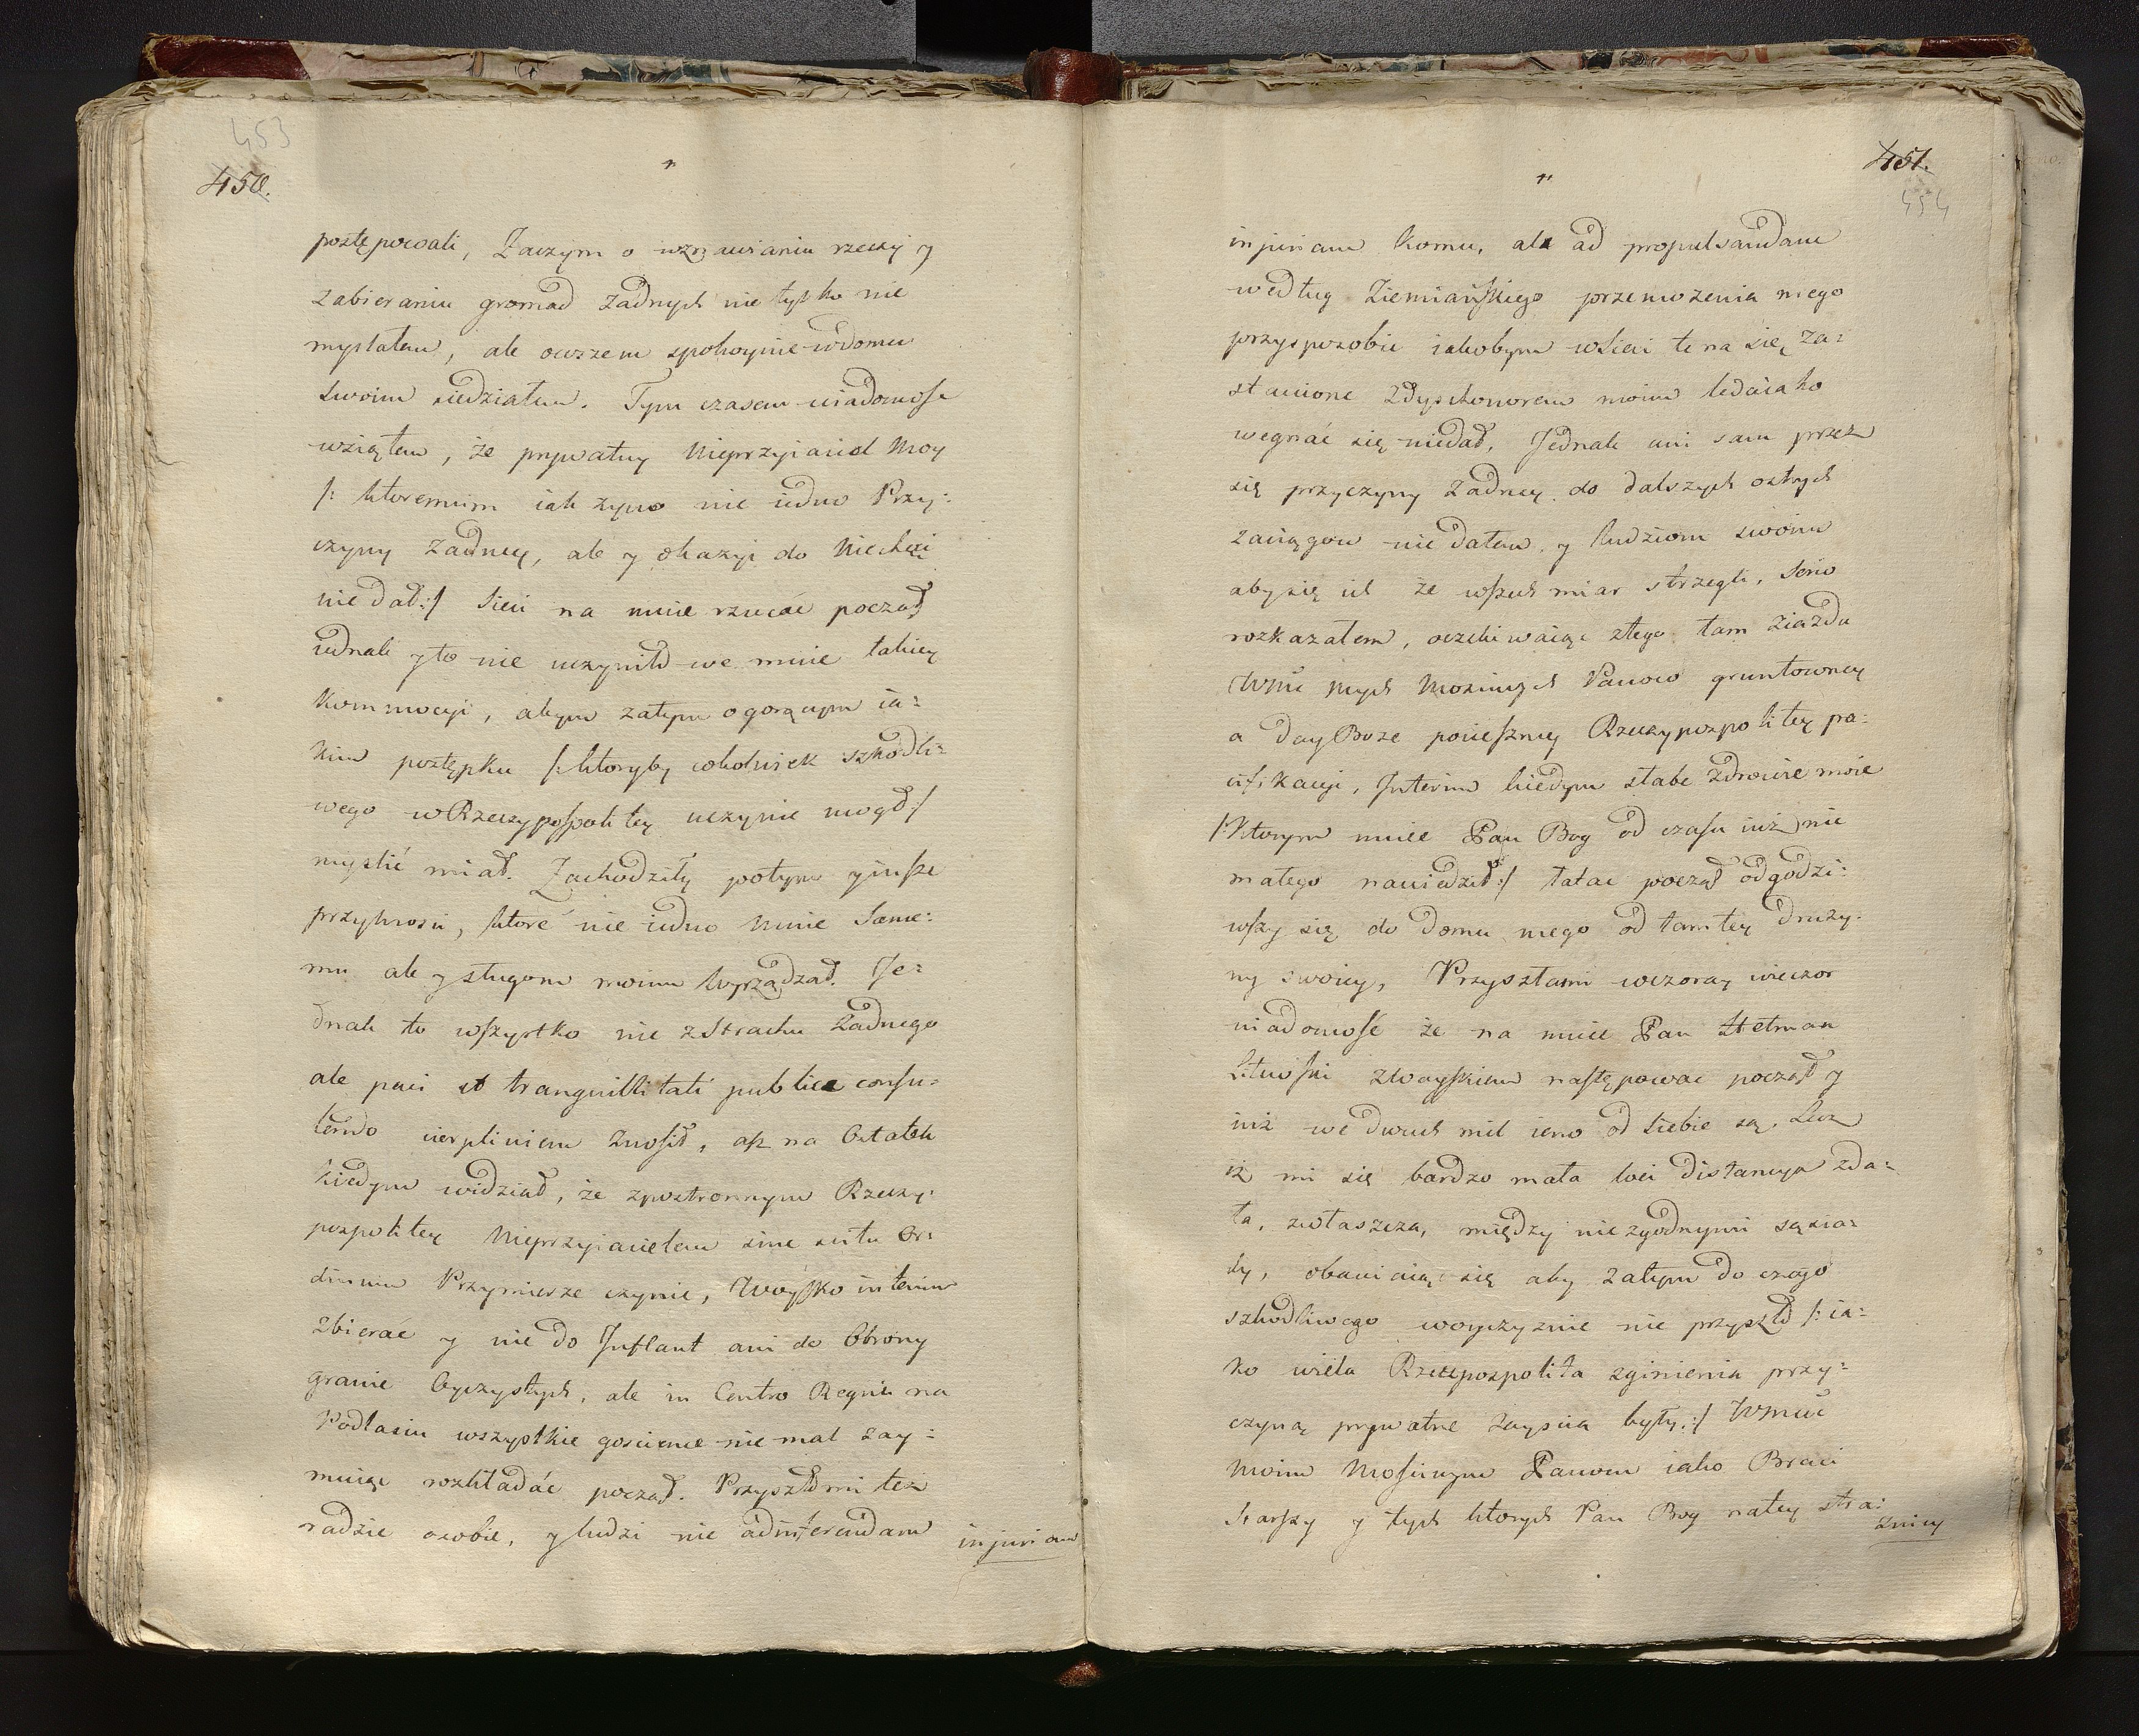 453
450.
postępowali, Zaczym o wznawianiu rzeczy y
zabieraniu gromad żadnych nie tylko nie
myslałem, ale owszem spokoynie w domu
swoim siedziałem. Tym czasem wiadomość
wziąłem, że prywatny Nieprzyiaciel Moy
/: ktoremum iak żywo nie iedno Przy:
czyny żadney, ale y okazyi do Niechęci
nie dał :/ Sieci na mnie rzucać począł
iednak y to nie uczyniło we mnie takiey
Kommocyi, abym zatym o gorącym ia:
kim postępku /: ktoryby cokolwiek szkodli:
wego w Rzeczypospolitey uczynić mogł :/
myslić miał. Zachodziły potym y insze
przykrosci, ktore nie iedno Mnie Same:
mu ale y sługom moim wyrządzał. Je:
dnak to wszystko nie z Strachu Żadnego
ale paci et tranquillitati publicæ consu:
lendo cierpliwiem Znosił, asz na Ostatek
kiedym widział, że z postronnym Rzeczy:
pospolitey Nieprzyiacielem sine scitu Or:
dinum Przymierze czynić, Woysko interim
zbierać y nie do Inflant ani do Obrony
granic Oyczystych, ale in Centro Regni na
Podlasiu wszystkie goscience nie mal zay:
muiąc rozkładać począł. Przyszło mi też
radzić o sobie, y ludzi nie ad inferendam
injuriam
451.
454
injuriam komu, ale ad propulsandam
według Ziemiańskiego przemożenia mego
przysposobić iakobym w Sieci te na się za:
stawione z dyshonorem moim ledaiako
wegnać się niedał, Jednak ani sam przez
się przyczyny żadney do dalszych ostrych
zaciągow nie dałem, y ludziom swoim
aby się ich że wszech miar strzegli, Serio
rozkazałem, oczekiwaiąc z tego tam Ziazdu
Wmć mych Mosciwych Panow gruntowney
a day Boże pociesznej Rzeczypospolitey pa:
cifikacyi, Interim kiedym słabe Zdrowie moie
/: Ktorym mnie Pan Bog od czasu iuż nie
małego nawiedził :/ łatać począł odgodzi:
wszy się do Domu mego od tamtey Druży:
ny swoiey, Przyszłami wczoray wieczor
wiadomość że na mnie Pan Hetman
Litewski z Woyskiem następować począł y
iuż we dwuch mil ieno od siebie są. Lecz
iż mi się bardzo mała boci distancya zda:
ła, zwłaszcza, między niezgodnymi sąsia:
dy, obawiaiąc się aby zatym do czego
szkodliwego w oyczyznie nie przyszło /: ia:
ko wielu Rzeczpospolita zginienia przy:
czyną prywatne Zaysca były :/ Wmci
Moim Mosciwym Panom iako Braci
Starszy y tych ktorych Pan Bog na tey stra:
żnicy